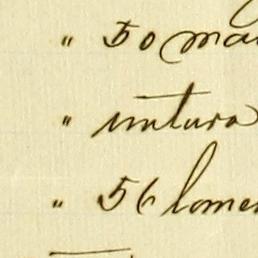 " 50 ma
" untura
" 56 lome